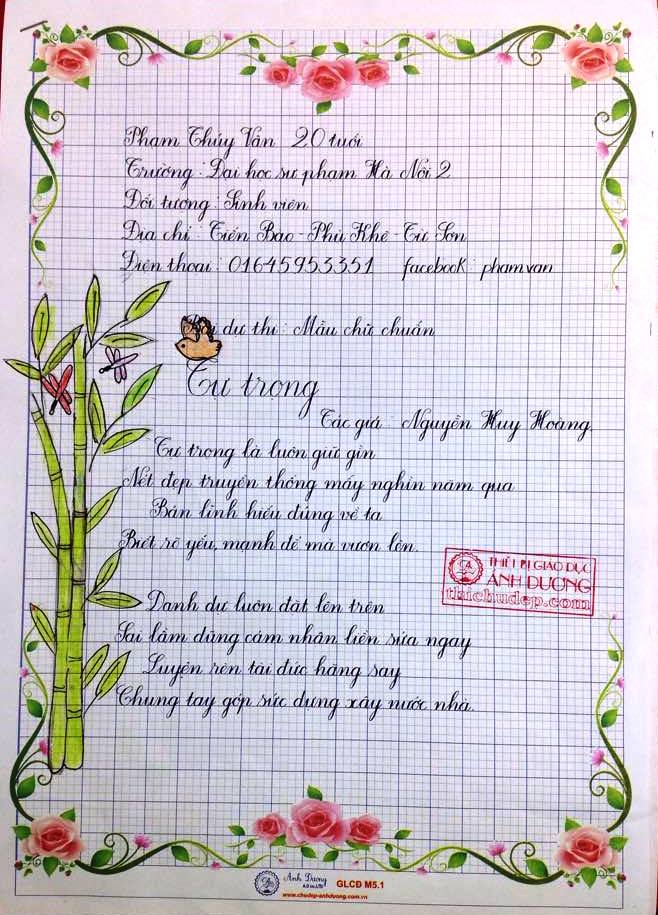 Phạm Thúy Vân 20 tuổi
Trường : Đại học sư phạm Hà Nội 2
Đối tượng : Sinh viên
Địa chỉ : Tiến Bào - Phù Khê - Từ Sơn
Điện thoại : 01645953351 facebook : phamvan
Bài dự thi : Mẫu chữ chuẩn
Tự trọng
Tác giả Nguyễn Huy Hoàng
Tự trọng là luôn giữ gìn
Nét đẹp truyền thống mấy nghìn năm qua
Bản lĩnh hiểu đúng về ta
Biết rõ yếu, mạnh để mà vươn lên.
THIẾT BỊ GIÁO DỤC
ÁNH DƯƠNG
thichudep.com
Danh dự luôn đặt lên trên
Sai lầm dũng cảm nhận liền sửa ngay
Luyện rèn tài đức hăng say
Chung tay góp sức dựng xây nước nhà.
Anh Dương
GLCD M5.1
www.chudep-anhduong.com.vn